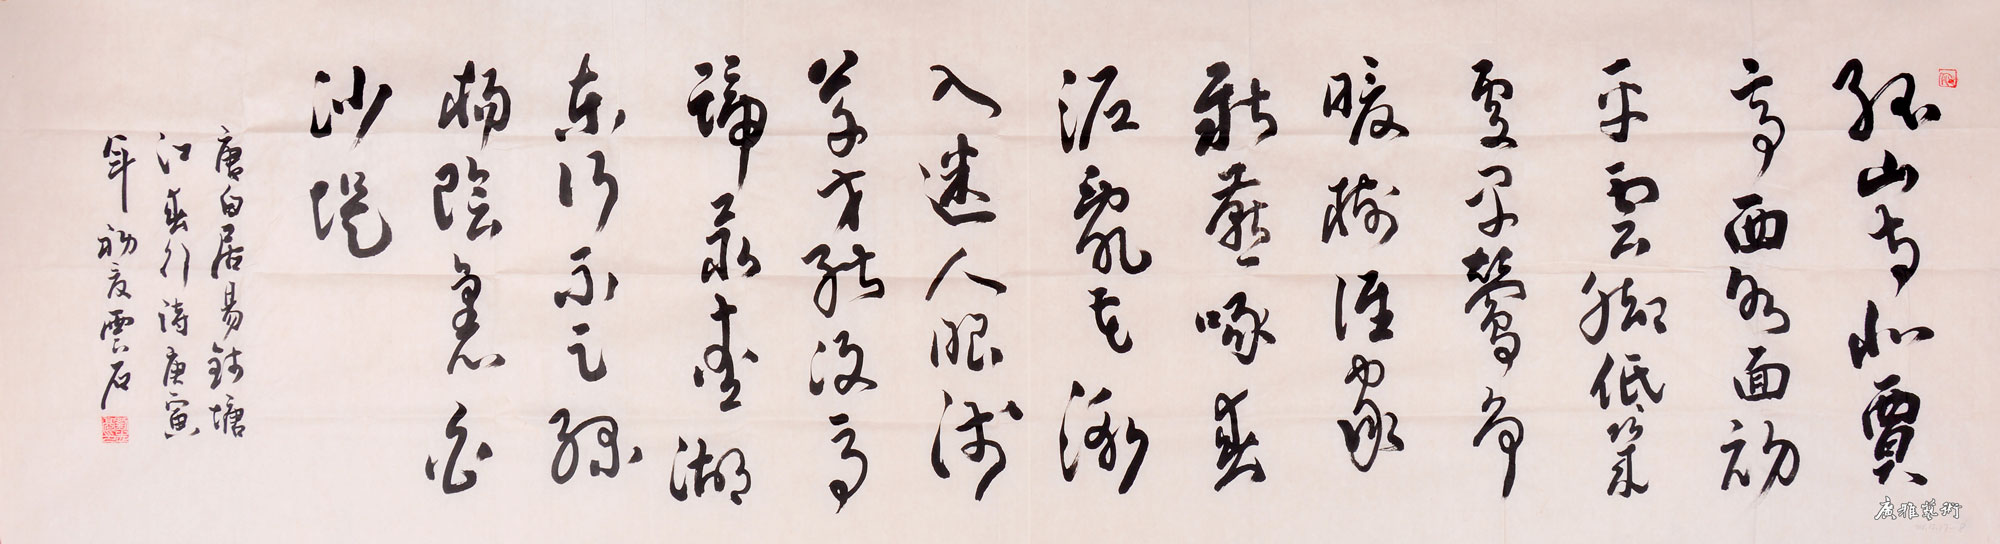 孤山寺北賈
亭西水面初
平雲腳低幾
處早鶯爭
暖樹誰家
新燕啄春
泥亂花漸
入迷人眼淺
草才能沒馬
蹄最愛湖
東行不足綠
楊陰裏白
沙堤
唐白居易錢塘
江春行詩庚寅
年初夏雲石
廣雅藝術